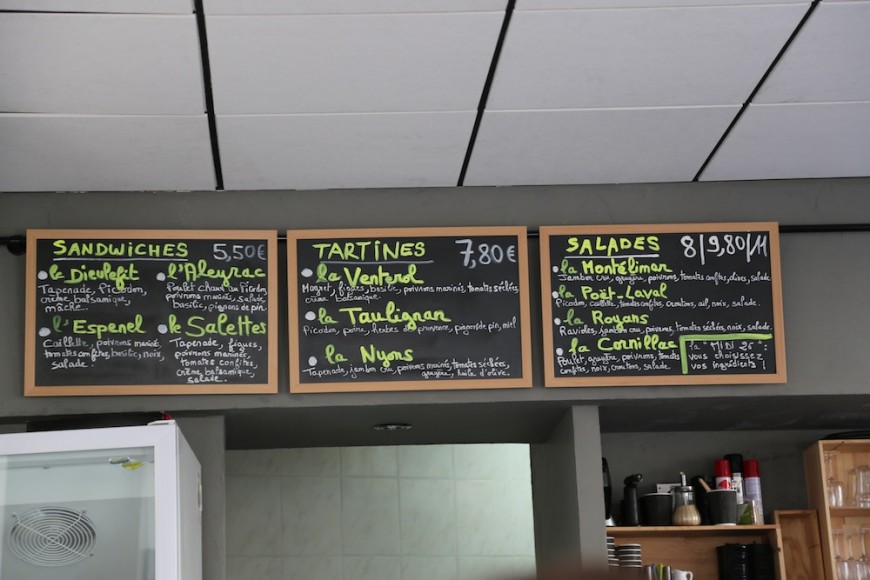 SANDWICHES 5,50€
le Dieulefit
Tapenade, Picodon,
crème balsamique,
mâche..
l'Aleyrac
Poulet chaud au Picodon,
poivrons marinés, salade,
basilic, pignons de pin.
l'Espenel
Caillette, poivrons marinés,
tomates confites, basilic, noix,
salade.
le Salettes
Tapenade, figues,
poivrons marinés,
tomates confites,
crème balsamique,
salade.
TARTINES 7,80€
la Venterol
Magret, figues, basilic, poivrons marinés, tomates séchées,
crème balsamique.
la Taulignan
Picodon, poire, herbes de provence, pignons de pin, miel
la Nyons
Tapenade, jambon cru, poivrons marinés, tomates séchées,
gruyère, huile d'olive.
SALADES 8/9,80/11
la Montélimar
Jambon cru, gruyère, poivrons, tomates confites, olives, salade
la Poët-Laval
Picodon, caillette, tomates confites, croutons, ail, noix, salade.
la Royans
Ravioles, jambon cru, poivrons, tomates séchées, noix, salade.
la Cornillac
Poulet, gruyère, poivrons, tomates
confites, noix, croutons, salade.
la "MIDI 26"
Vous choisissez
vos ingrédients !